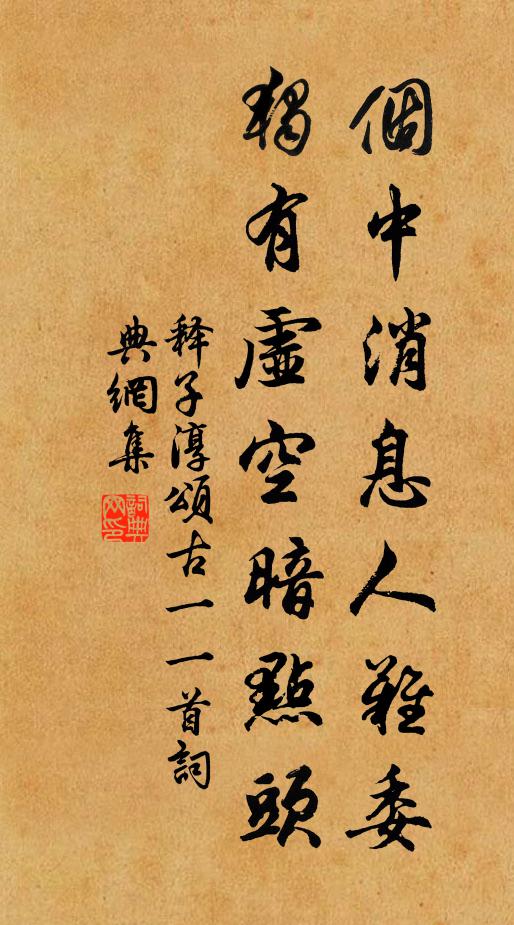 個中消息人難委
獨有虛空暗點頭
释子淳頌古一一首詞
典網集
詞典
网印